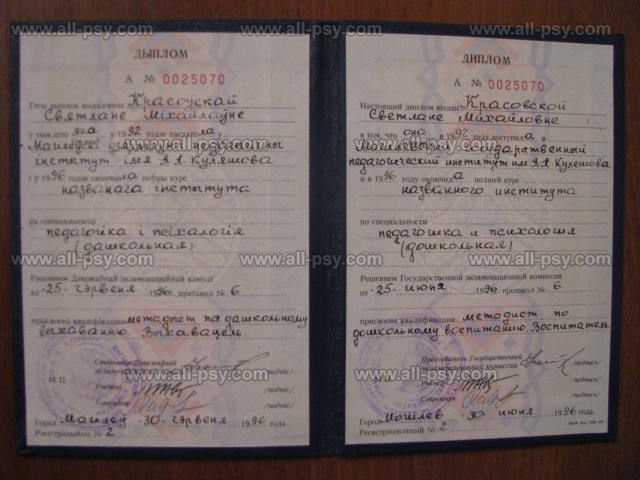 www.all-psy.com www.all-psy.com www.all-psy.com
ДЫПЛОМ
А № 0025070
Гэты дыплом выдадзены Красоўскай
Святлане Міхайлаўне
у тым, што яна у 1992 годзе паступіла у
Магілёўскі дзяржаўны педагагічны
інстытут імя А.А. Куляшова
і у 1996 годзе скончыла поўны курс
названага інстытута
па спецыяльнасці
педагогіка і псіхалогія
(дашкольная)
Рашэннем Дзяржаўнай экзаменацыйнай камісіі
ад 25 чэрвеня 1996 г. пратакол № 6
прысвоена кваліфікацыя метадыст па дашкольному
выхаванню. Выхавацель.
Старшыня Дзяржаўнай
экзаменацыйнай камісіі /подпіс/
М.П. Рэктар /подпіс/
Сакратар /подпіс/
Горад Магілёў 30 чэрвеня 1996 года
Рэгістрацыйны № 2
ДИПЛОМ
А № 0025070
Настоящий диплом выдан Красовской
Светлане Михайловне
в том, что она в 1992 году поступила в
Могилевский государственный
педагогический институт им. А.А. Кулешова
и в 1996 году окончила полный курс
названного института
по специальности
педагогика и психология
(дошкольная)
Решением Государственной экзаменационной комиссии
от 25 июня 1996 г. протокол № 6
присвоена квалификация методист по
дошкольному воспитанию. Воспитатель.
Председатель Государственной
экзаменационной комиссии /подпись/
М.П. Ректор /подпись/
Секретарь /подпись/
Город Могилев 30 июня 1996 года
Регистрационный № 2
www.all-psy.com www.all-psy.com www.all-psy.com